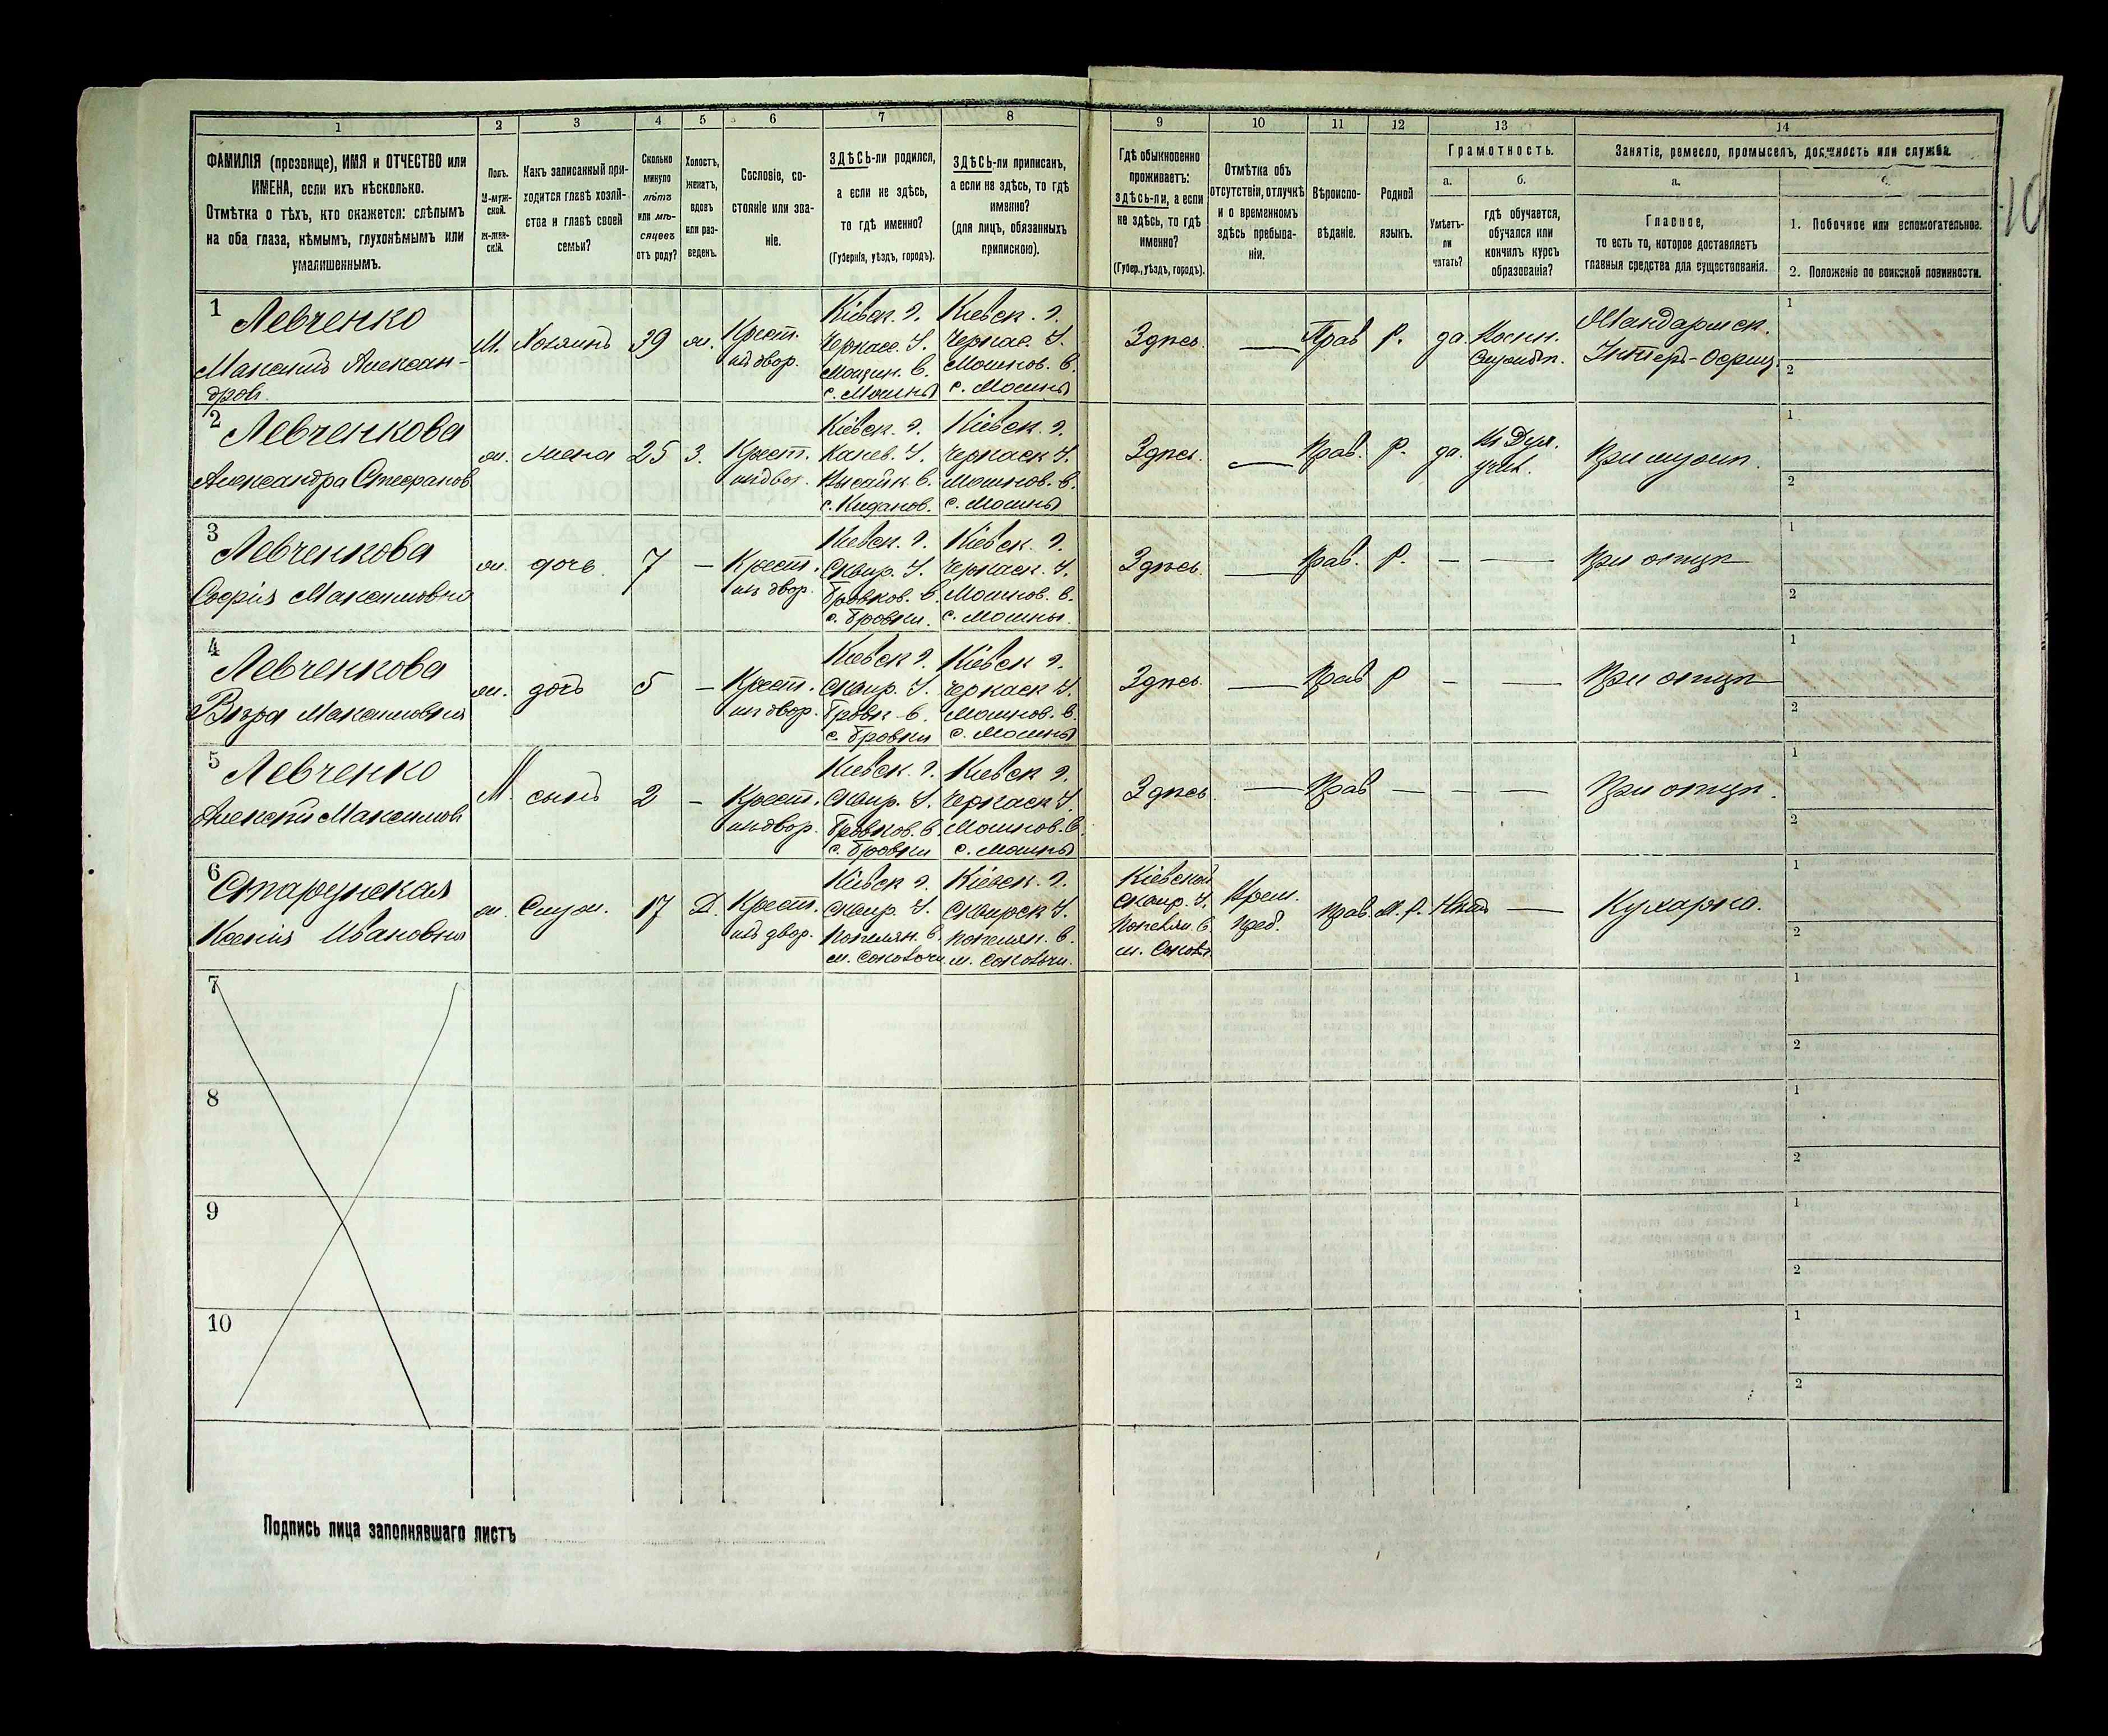 1 2 3 4 5 6 7 8 9 10 11 12 13 14
ФАМИЛІЯ (прозвище), ИМЯ и ОТЧЕСТВО или
ИМЕНА, если ихъ нѣсколько.
Отмѣтка о тѣхъ, кто окажется: слѣпымъ
на оба глаза, нѣмымъ, глухонѣмымъ или
умалишеннымъ.
Полъ.
М-муж-
ской.
Ж-жен-
скій.
Какъ записанный при-
ходится главѣ хозяй-
ства и главѣ своей
семьи?
Сколько
минуло
лѣтъ
или мѣ-
сяцевъ
отъ роду?
Холостъ,
женатъ,
вдовъ
или раз-
веденъ.
Сословіе, со-
стояніе или зва-
ніе.
ЗДѢСЬ-ли родился,
а если не здѣсь,
то гдѣ именно?
(Губернія, уѣздъ, городъ).
ЗДѢСЬ-ли приписанъ,
а если не здѣсь, то гдѣ
именно?
(для лицъ, обязанныхъ
припискою).
Гдѣ обыкновенно
проживаетъ:
здѣсь-ли, а если
не здѣсь, то гдѣ
именно?
(Губер., уѣздъ, городъ).
Отмѣтка объ
отсутствіи, отлучкѣ
и о временномъ
здѣсь пребыва-
ніи.
Вѣроиспо-
вѣданіе.
Родной
языкъ.
Грамотность.
а.
Умѣетъ-
ли
читать?
б.
гдѣ обучается,
обучался или
кончилъ курсъ
образованія?
Занятіе, ремесло, промыселъ, должность или служба.
а.
Главное,
то есть то, которое доставляетъ
главныя средства для существованія.
б.
1. Побочное или вспомогательное.
2. Положеніе по воинской повинности.
1
Левченко
Максимъ Алексан-
дров.
М. Хозяинъ 39 ж.
Крест.
изъ двор.
Кіевск. г.
Черкасс. У.
с. Мошны
Кіевск. г.
Черкас. У.
Мошнов. В.
с. Мошны
Здѣсь — Прав Р. да.
Жандармск.
Унтеръ-Офиц.
1
2
2
Левченкова
Александра Стефанов
ж. жена 25 З.
Крест.
изъ двор.
Кіевск. г.
Канев. У.
Кіевск. г.
Черкаск У.
Мошнов. в.
с. Мошны
Здѣсь — Прав. Р. да.
При мужѣ.
1
2
3
Левченкова
Софія Максимовна
ж. дочь 7 —
Крест.
изъ двор.
Кіевск. г.
Сквир. У.
Бровков. В.
с. Бровки.
Кіевск. г.
Черкаск. У.
Мошнов. в.
с. Мошны.
Здѣсь — Прав. Р. — —
При отцѣ
1
2
4
Левченкова
Вѣра Максимовна
ж. дочь 5 —
Крест.
изъ двор.
Кіевск г.
Сквир. У.
Бровк. в.
с. Бровки
Кіевск г.
Черкаск У.
Мошнов. в.
с. Мошны
Здѣсь — Прав Р — —
При отцѣ
1
2
5
Левченко
Алексѣй Максимов
М. сынъ 2 —
Крест.
изъ двор.
Кіевск. г.
Сквир. У.
Бровков. в.
с. Бровки
Кіевск г.
Черкаск У.
Мошнов. в.
с. Мошны
Здѣсь — Прав — — —
При отцѣ.
1
2
6
Ксенія Ивановна
ж. Служ. 17 Д.
Крест.
изъ двор.
Кіевск г.
Сквир. У.
Попелян. в.
м. Соколочи
Кіевск. г.
Сквирск У.
Попелян. в.
м. Соколочи.
Кіевской
Сквир. У.
Попелян. в.
Врем.
преб.
Прав. М. Р. Нѣтъ —
Кухарка.
1
2
7
1
2
8
1
2
9
1
2
10
1
2
Подпись лица заполнявшаго листъ